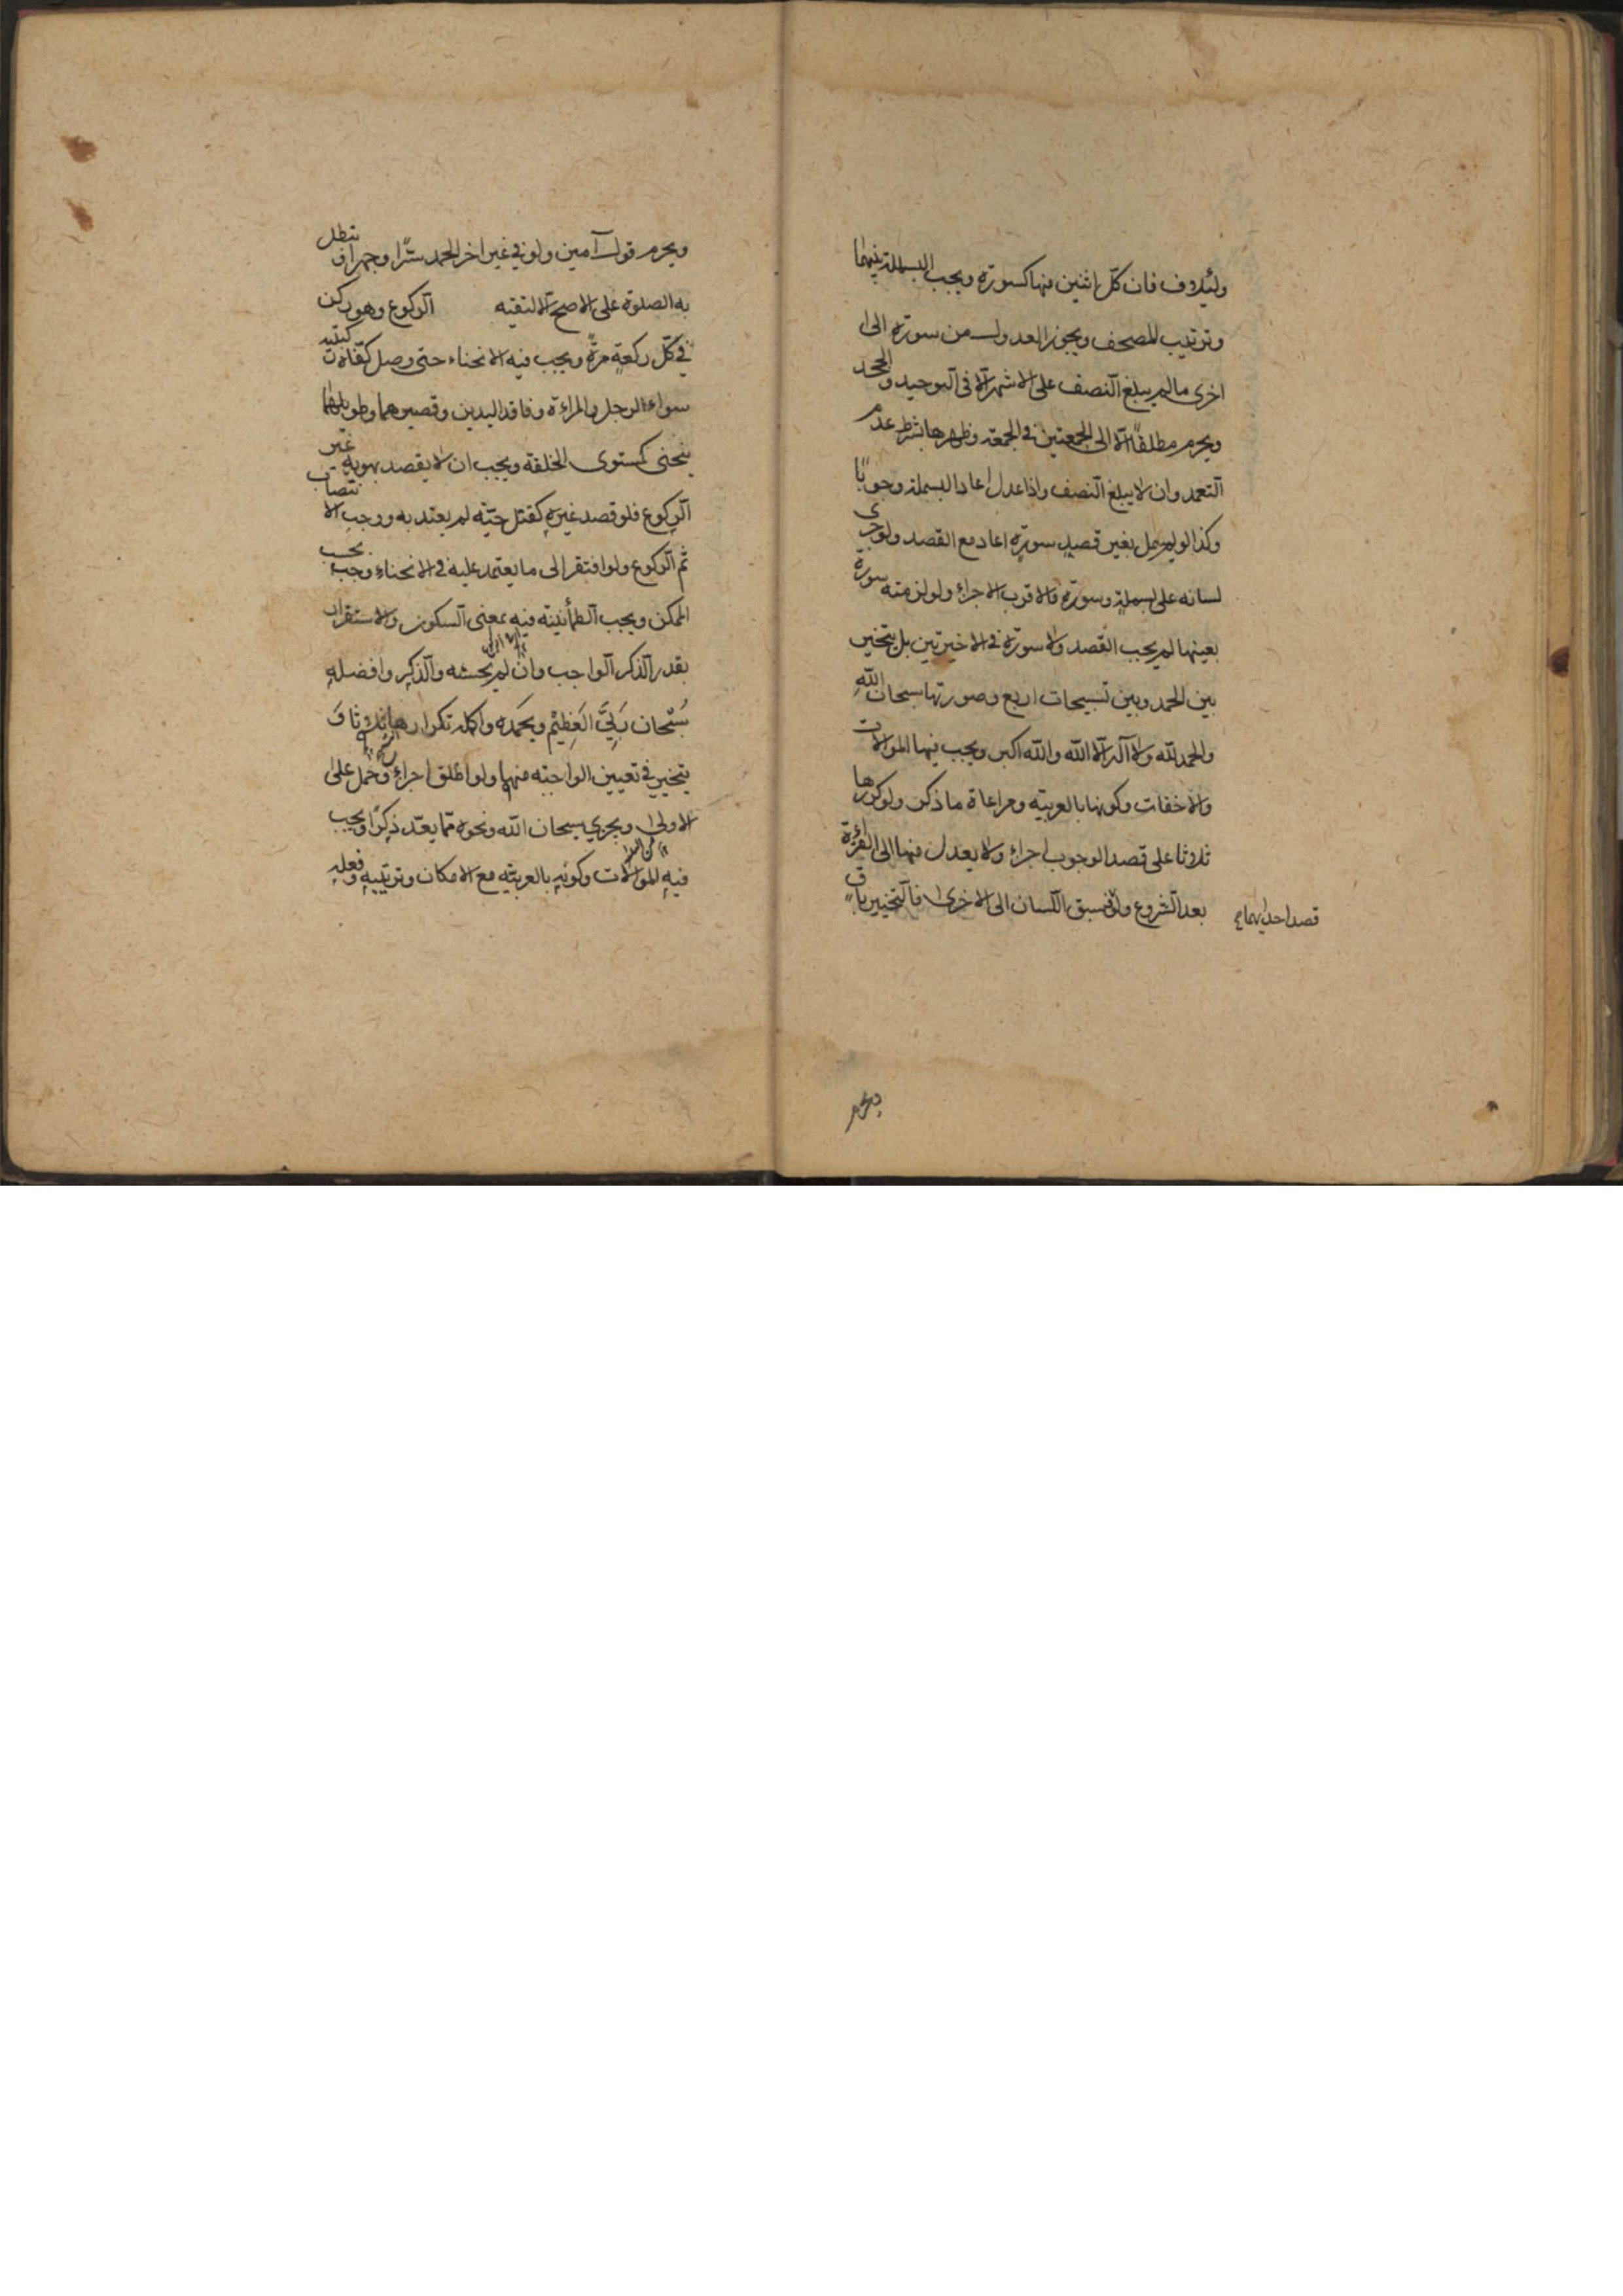 ولئيلاف فان كلّ اثنين منها كسورة ويجب البسملة بينهما
وترتيب المصحف ويجوز العدول من سورة الى
اخرى ما لم يبلغ النصف على الاشهر الّا فى التوحيد والجحد
ويحرم مطلقاً الّا الى الجمعتين فى الجمعة وظهرها بشرط عدم
التعمد وان لا يبلغ النصف واذا عدل اعاد البسملة وجوباً
وكذا لو بسمل بغير قصد سورة اعاد مع القصد ولو جرى
لسانه على بسملة وسورة فالاقرب الاجزاء ولو لزمته سورة
بعينها لم يجب القصد ولا سورة فى الاخيرتين بل يتخير
بين الحمد وبين تسبيحات اربع وصورتها سبحان الله
والحمد لله ولا آله الّا الله والله اكبر ويجب فيها الموالات
والاخفات وكونها بالعربية ومراعاة ما ذكر ولو كررها
ثلاثا على قصد الوجوب اجزاء ولا يعدل منها الى القراءة
بعد الشروع ولو سبق اللسان الى الاخرى فالتخيير باق
قصد احديهما
ويحرم
ويحرم قول آمين ولو فى غير اخر الحمد سرّا وجهرا وتبطل
به الصلوة على الاصح الّا لتقيه الركوع وهو ركن
فى كلّ ركعة مرّة ويجب فيه الانحناء حتى وصل كفّاه ركبتيه
سواء الرجل والمراءة وفاقد اليدين وقصيرهما وطويلهما
ينحنى كمستوى الخلقة ويجب ان لا يقصد بهويه غير
الركوع فلو قصد غيره كقتل حيّة لم يعتد به ووجب الانتصاب
ثم الركوع ولو افتقر الى ما يعتمد عليه فى الانحناء وجب بحسب
الممكن ويجب الطمأنينة فيه بمعنى السكون والاستقرار
بقدر الذكر الواجب وان لم يحسنه والذكر وافضله
سُبْحان رَبِّيَ العَظِيْم وبحَمْدِه واكمله تكرارها ثلاثا وَ
يتخير فى تعيين الواجبة منها ولو اطلق اجزاء وحمل على
الاولى ويجزي سبحان الله ونحوه ممّا يعدّ ذكرًا ويجب
فيه الموالات وكونه بالعربيّة مع الامكان وترتيبه وفعله